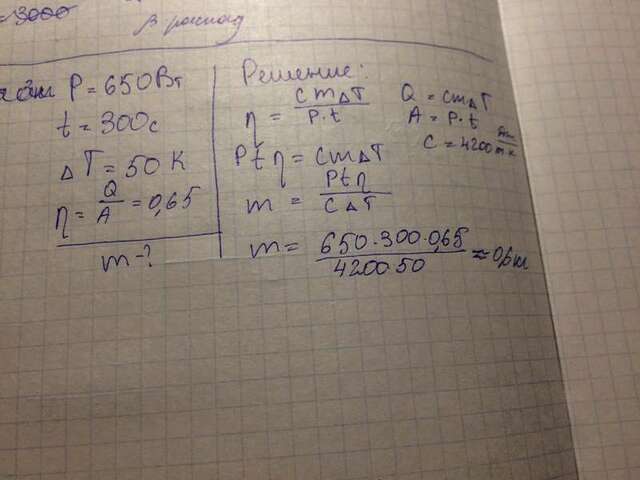 =3000
β распад
P = 650Вт
t = 300с
ΔT = 50 K
η = Q/A = 0,65
m - ?
Решение:
η = cmΔT / P·t
Q = cmΔT
A = P·t
C = 4200
Ptη = cmΔT
m = Ptη / CΔT
m = 650·300·0,65 / 4200·50 ≈ 0,6 кг